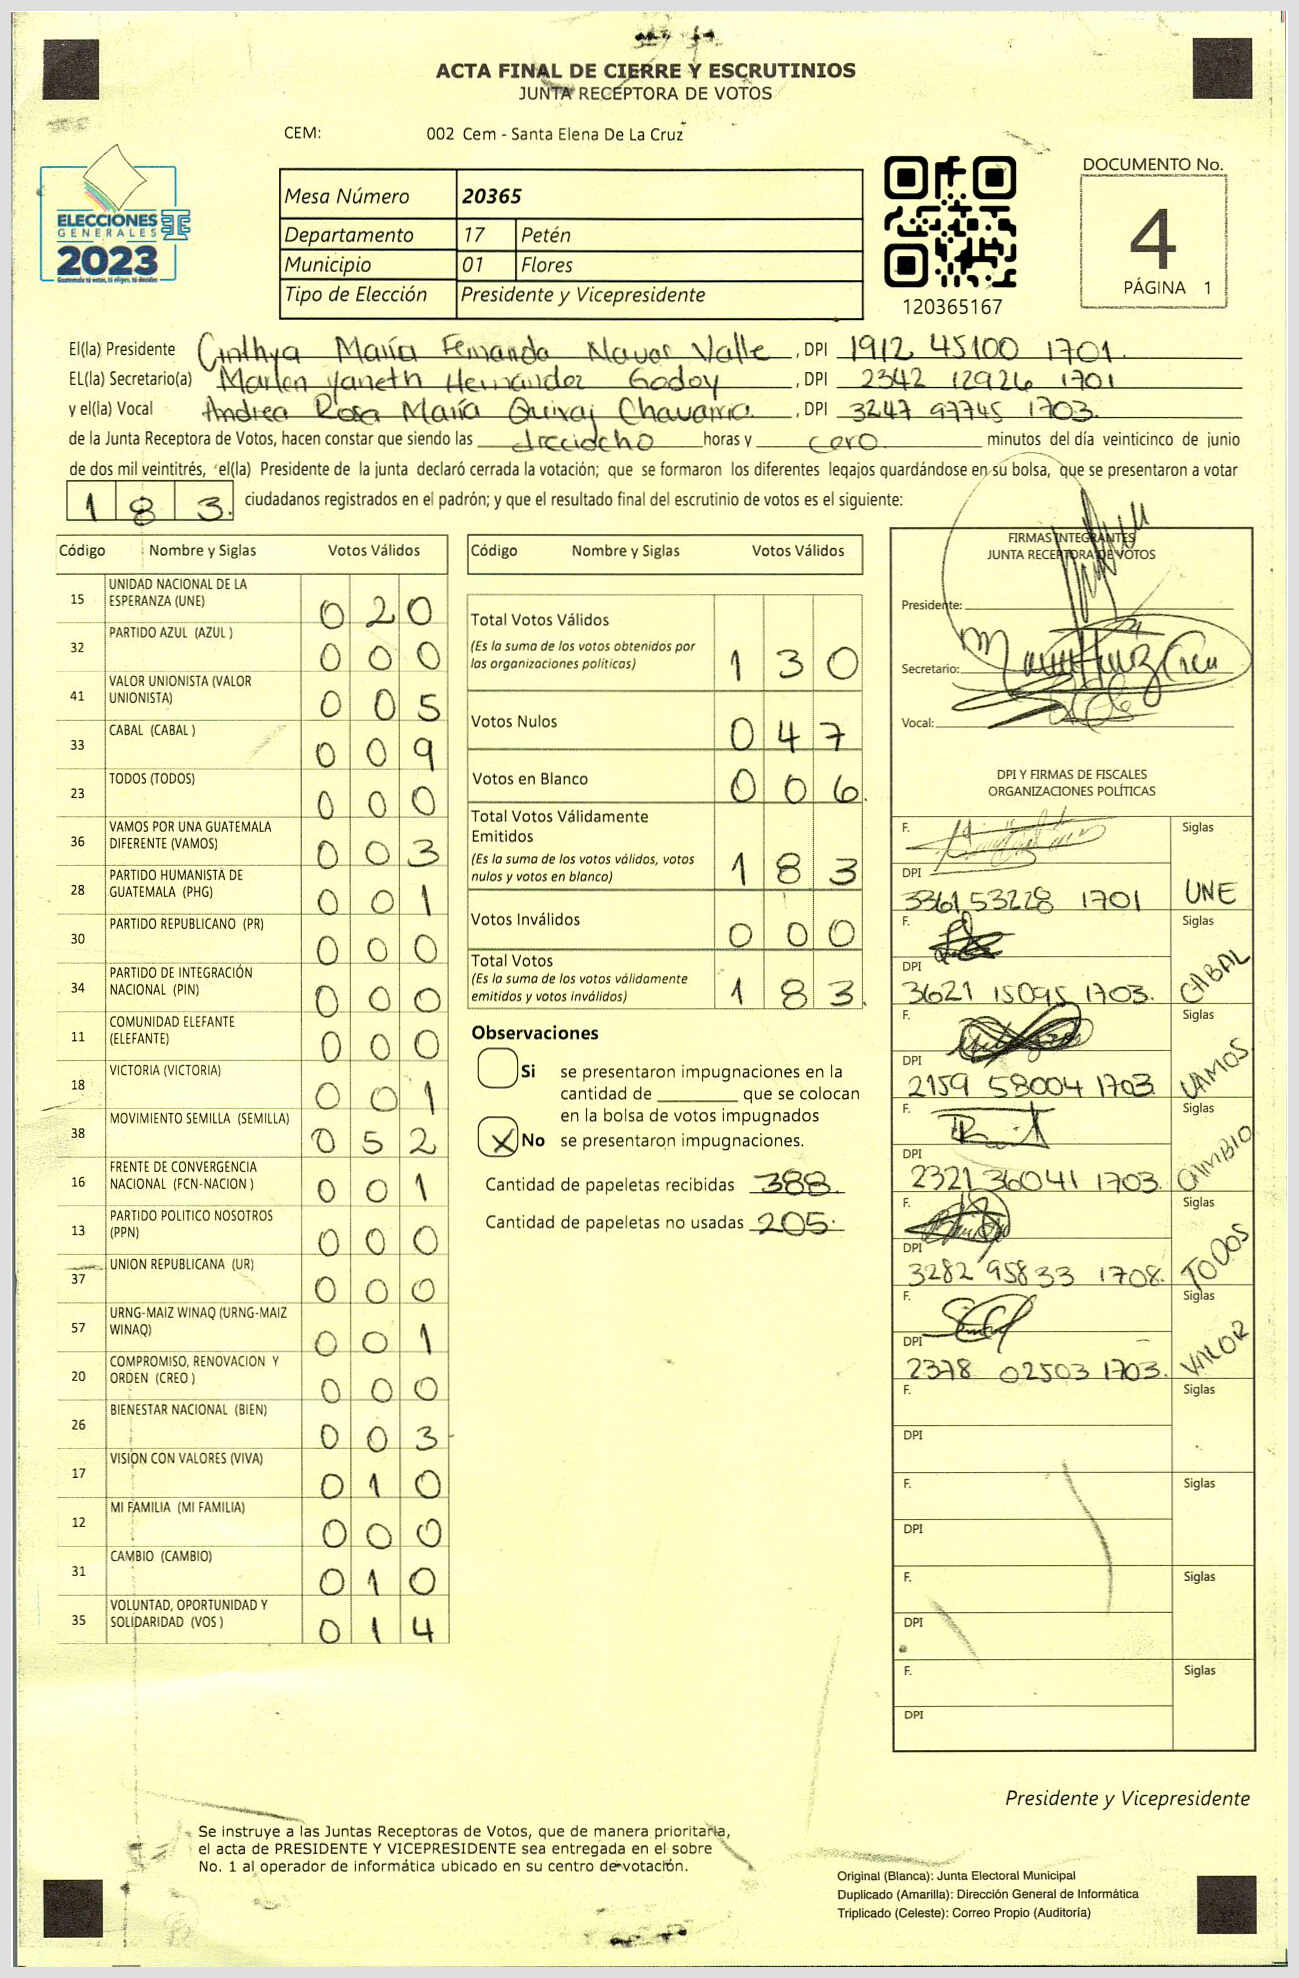 ACTA FINAL DE CIERRE Y ESCRUTINIOS
JUNTA RECEPTORA DE VOTOS
CEM: 002 Cem - Santa Elena De La Cruz
ELECCIONES
GENERALES
2023
Guatemala tú votas, tú eliges, tú decides
Mesa Número 20365
Departamento 17 Petén
Municipio 01 Flores
Tipo de Elección Presidente y Vicepresidente
120365167
DOCUMENTO No.
4
PÁGINA 1
El(la) Presidente Cinthya María Fernanda Navas Valle, DPI 1912 45100 1701.
EL(la) Secretario(a) Marlen Yaneth Hernández Godoy, DPI 2342 12926 1701
y el(la) Vocal Andrea Rosa María Quixaj Chavarria., DPI 3247 97745 1703.
de la Junta Receptora de Votos, hacen constar que siendo las dieciocho horas y cero minutos del día veinticinco de junio
de dos mil veintitrés, el(la) Presidente de la junta declaró cerrada la votación; que se formaron los diferentes legajos quardándose en su bolsa, que se presentaron a votar
183. ciudadanos registrados en el padrón; y que el resultado final del escrutinio de votos es el siguiente:
Código Nombre y Siglas Votos Válidos
15 UNIDAD NACIONAL DE LA ESPERANZA (UNE) 020
32 PARTIDO AZUL (AZUL ) 000
41 VALOR UNIONISTA (VALOR UNIONISTA) 005
33 CABAL (CABAL ) 009
23 TODOS (TODOS) 000
36 VAMOS POR UNA GUATEMALA DIFERENTE (VAMOS) 003
28 PARTIDO HUMANISTA DE GUATEMALA (PHG) 001
30 PARTIDO REPUBLICANO (PR) 000
34 PARTIDO DE INTEGRACIÓN NACIONAL (PIN) 000
11 COMUNIDAD ELEFANTE (ELEFANTE) 000
18 VICTORIA (VICTORIA) 001
38 MOVIMIENTO SEMILLA (SEMILLA) 052
16 FRENTE DE CONVERGENCIA NACIONAL (FCN-NACION ) 001
13 PARTIDO POLITICO NOSOTROS (PPN) 000
37 UNION REPUBLICANA (UR) 000
57 URNG-MAIZ WINAQ (URNG-MAIZ WINAQ) 001
20 COMPROMISO, RENOVACION Y ORDEN (CREO ) 000
26 BIENESTAR NACIONAL (BIEN) 003
17 VISION CON VALORES (VIVA) 010
12 MI FAMILIA (MI FAMILIA) 000
31 CAMBIO (CAMBIO) 010
35 VOLUNTAD, OPORTUNIDAD Y SOLIDARIDAD (VOS ) 014
Código Nombre y Siglas Votos Válidos
Total Votos Válidos
(Es la suma de los votos obtenidos por
las organizaciones politicas) 130
Votos Nulos 047
Votos en Blanco 006.
Total Votos Válidamente
Emitidos
(Es la suma de los votos válidos, votos
nulos y votos en blanco) 183
Votos Inválidos 000
Total Votos
(Es la suma de los votos válidamente
emitidos y votos inválidos) 183.
Observaciones
Si se presentaron impugnaciones en la
cantidad de ________ que se colocan
en la bolsa de votos impugnados
X No se presentaron impugnaciones.
Cantidad de papeletas recibidas 388.
Cantidad de papeletas no usadas 205.
FIRMAS INTEGRANTES
JUNTA RECEPTORA DE VOTOS
Presidente:
Secretario:
Vocal:
DPI Y FIRMAS DE FISCALES
ORGANIZACIONES POLÍTICAS
F. Siglas
DPI
3361 53228 1701 UNE
F. Siglas
DPI
3621 15095 1703. CABAL
F. Siglas
DPI
2159 58004 1703. VAMOS
F. Siglas
DPI
2321 36041 1703. CAMBIO
F. Siglas
DPI
3282 95833 1708. TODOS
F. Siglas
DPI
2378 02503 1703. VALOR
F. Siglas
DPI
F. Siglas
DPI
F. Siglas
DPI
F. Siglas
DPI
Presidente y Vicepresidente
Se instruye a las Juntas Receptoras de Votos, que de manera prioritaria,
el acta de PRESIDENTE Y VICEPRESIDENTE sea entregada en el sobre
No. 1 al operador de informática ubicado en su centro de votación.
Original (Blanca): Junta Electoral Municipal
Duplicado (Amarilla): Dirección General de Informática
Triplicado (Celeste): Correo Propio (Auditoría)